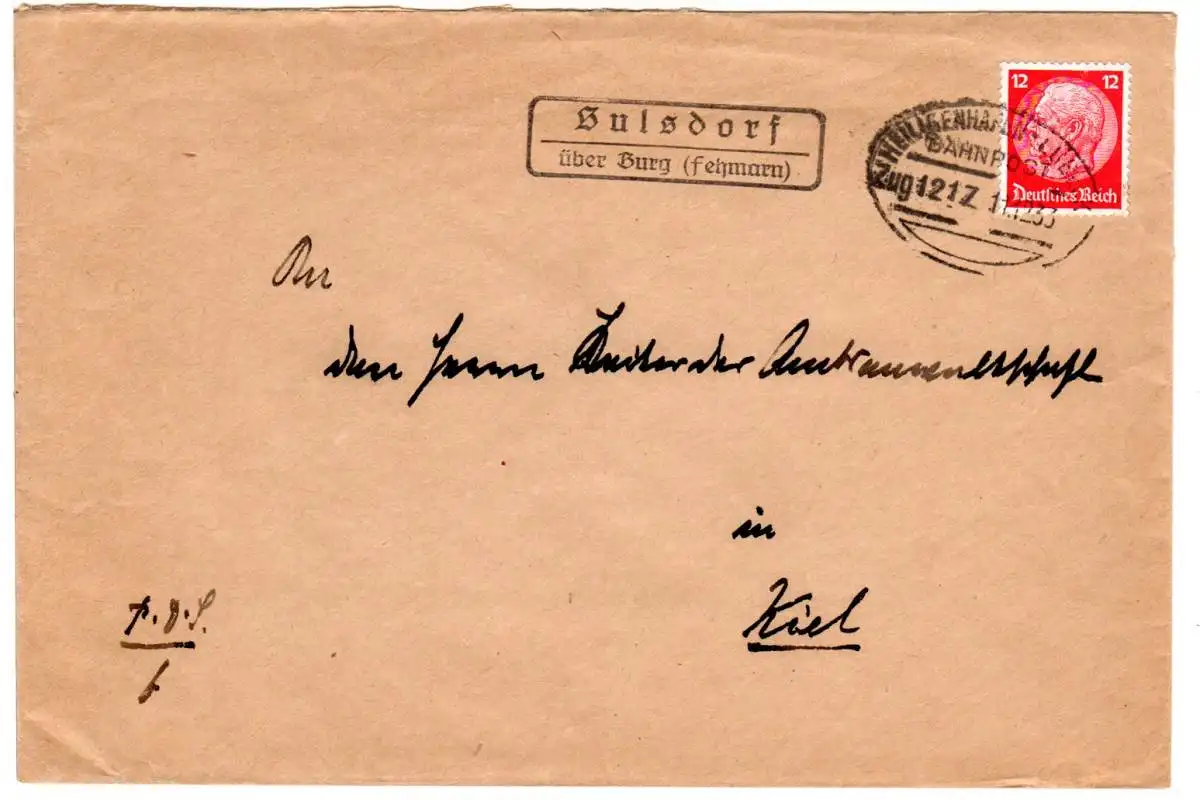 Sulsdorf
über Burg (Fehmarn)
12 12
Deutsches Reich
HEILIGENHAFEN
BAHNPOST
Zug 1217 11.12.33
An
den Herrn Leiter der Amtsanwaltschaft
in
Kiel